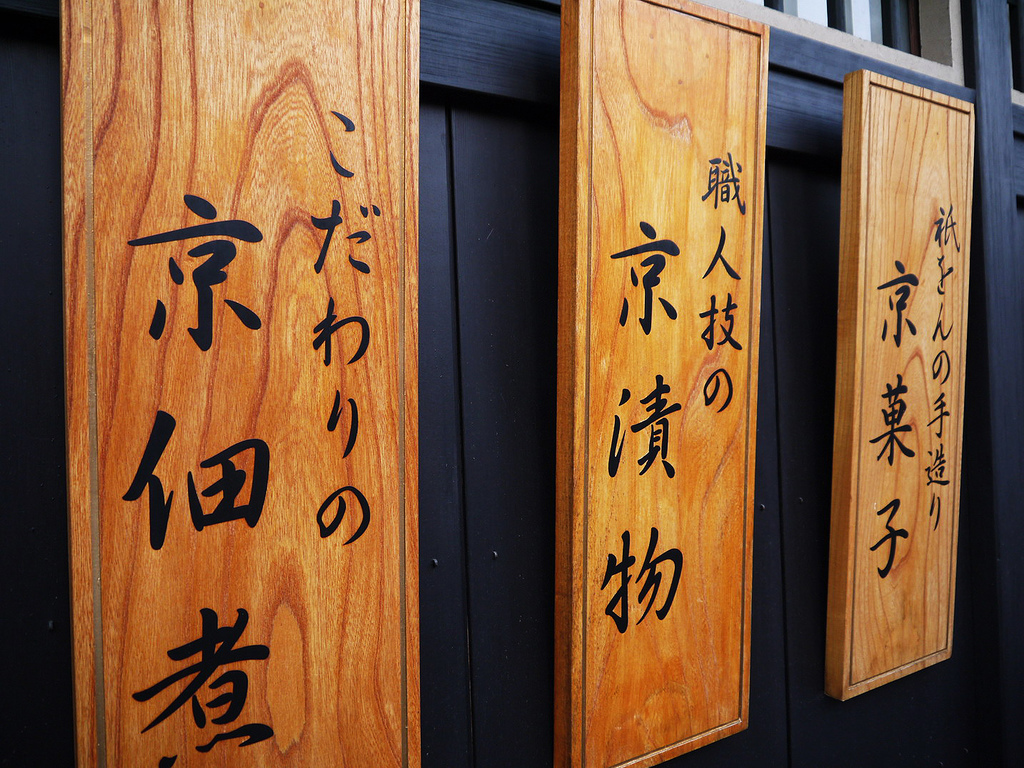 職人技の
京漬物
祇をんの手造り
京菓子
こだわりの
京佃煮